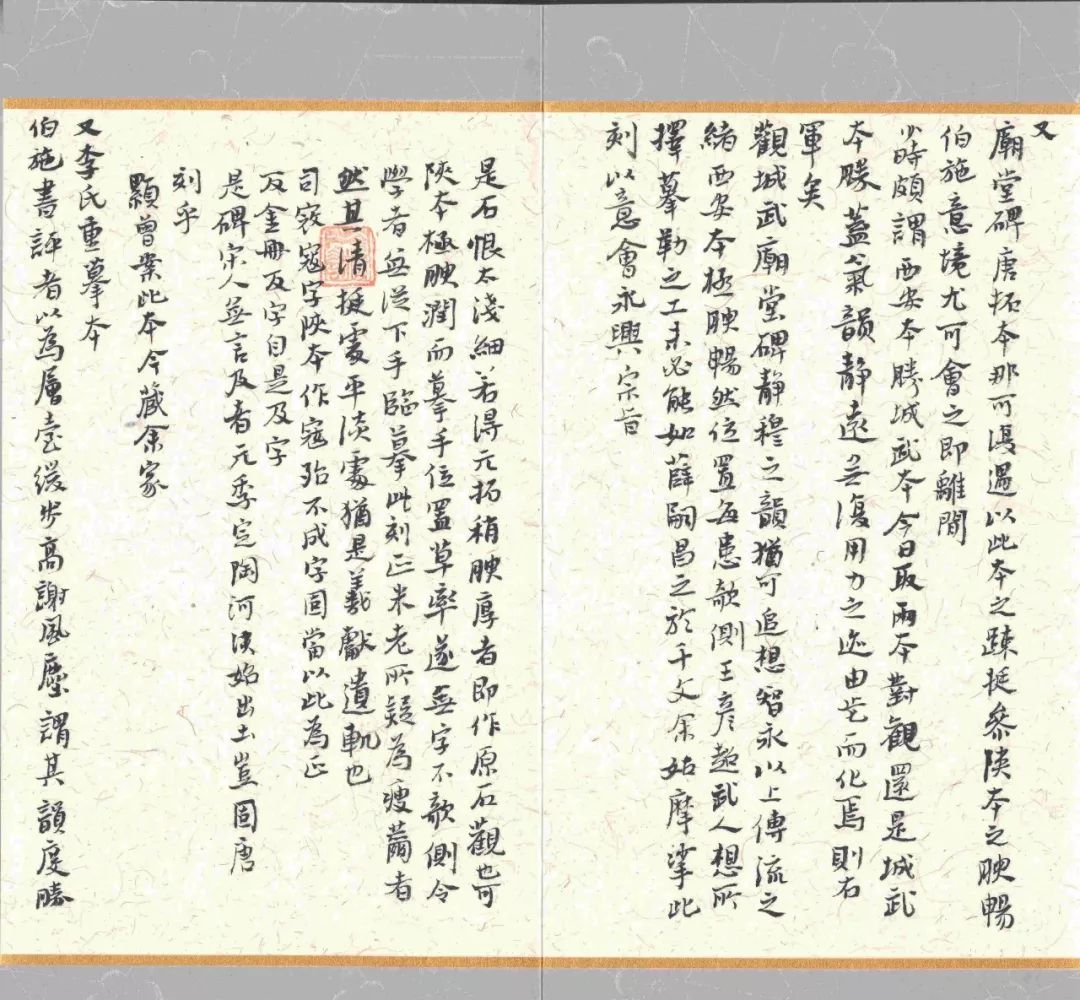 又
廟堂碑唐拓本那可復遇以此本之疎挺參陝本之腴暢
伯施意境尤可會之即離間
少時頗謂西安本勝城武本今日取兩本對觀還是城武
本勝蓋氣韻靜遠無復用力之迹由是而化焉則右
軍矣
觀城武廟堂碑靜穆之韻猶可追想智永以上傳流之
緒西安本極腴暢然位置每患欹側王彥超武人想所
擇摹勒之工未必能如薛嗣昌之於千文余姑摩挲此
刻以意會永興宗旨
是石恨太淺細若得元拓稍腴厚者即作原石觀也可
陝本極腴潤而摹手位置草率遂無字不欹側令
學者無從下手臨摹此刻正米老所疑為瘦繭者
然其清挺處平淡處猶是羲獻遺軌也
司寇寇字陝本作寇殆不成字固當以此為正
及金冊及字自是及字
是碑宋人無言及者元季定陶河決始出土豈固唐
刻乎
顥曾案此本今藏余家
又李氏重摹本
伯施書評者以為層臺緩步高謝風塵謂其韻度勝